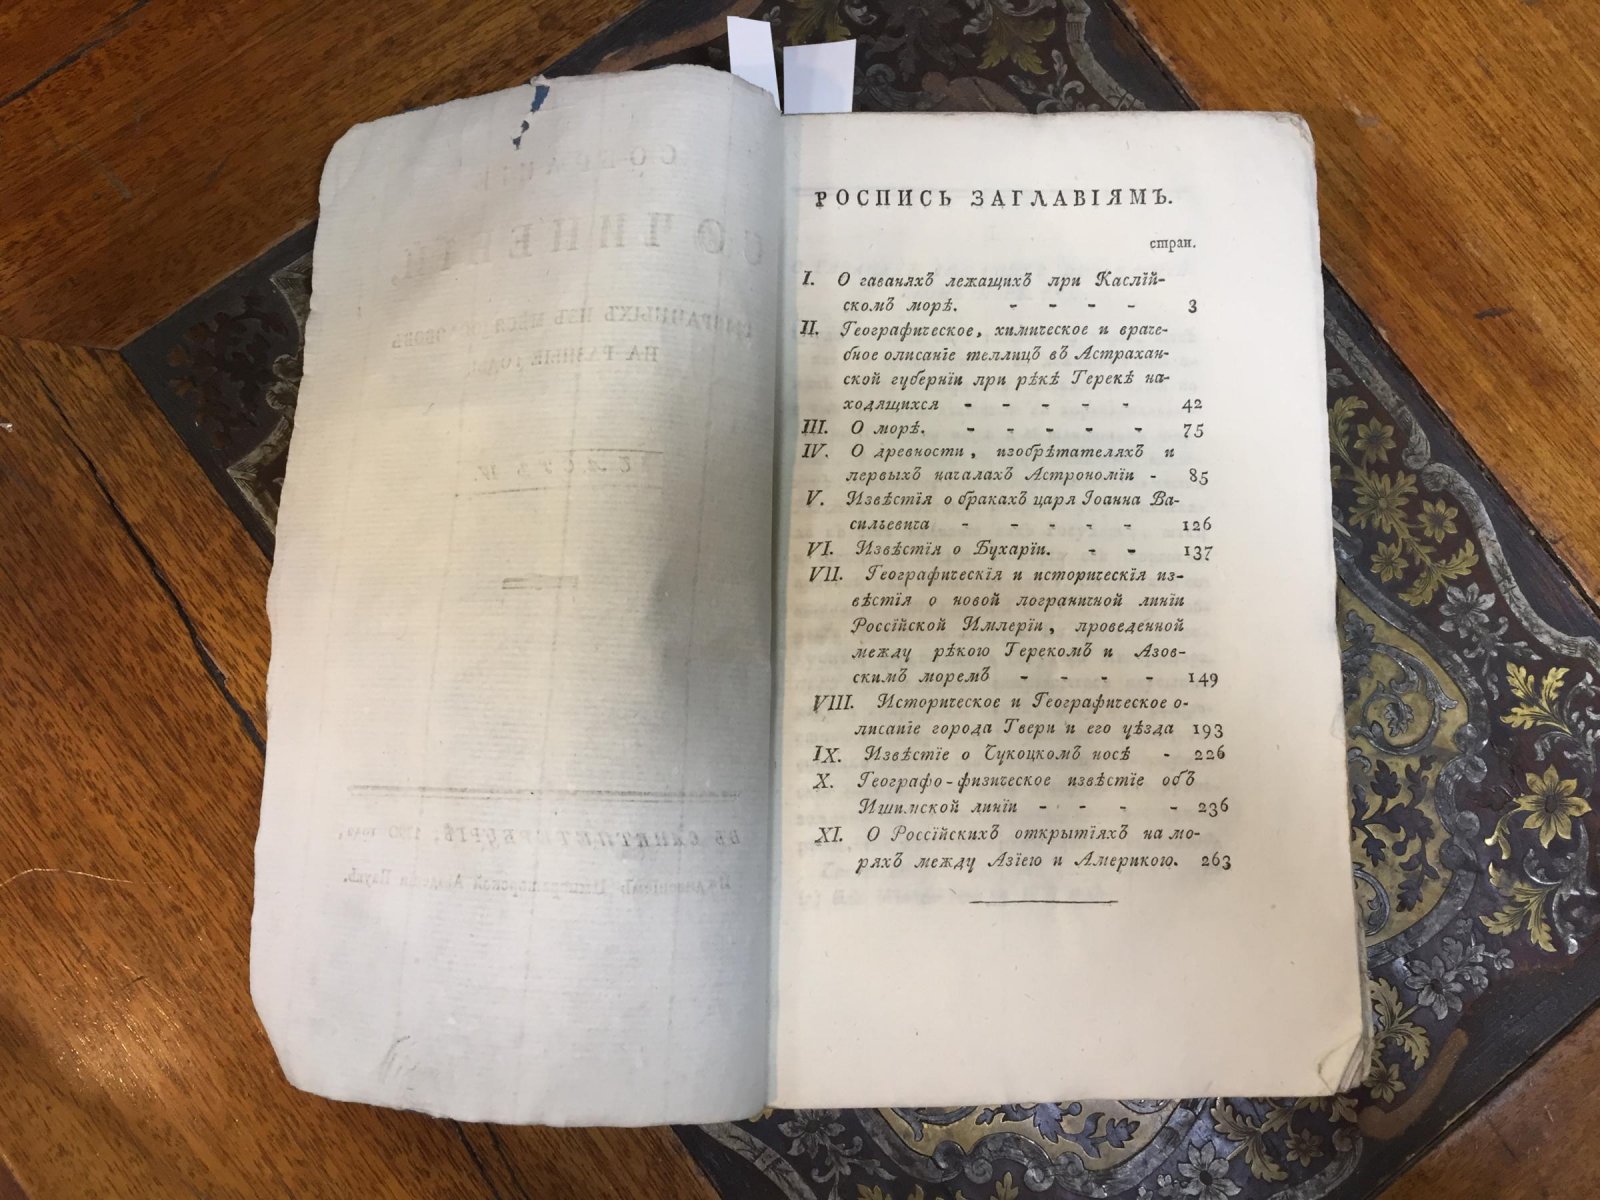 РОСПИСЬ ЗАГЛАВІЯМЪ.
стран.
I. О гаваняхъ лежащихъ при Каспїй-
скомъ морѣ. - - - - 3
II. Географическое, химическое и враче-
бное описанїе теплицъ въ Астрахан-
ской губернїи при рѣкѣ Терекѣ на-
ходящихся - - - - - 42
III. О морѣ. - - - - - 75
IV. О древности, изобрѣтателяхъ и
первыхъ началахъ Астрономїи - 85
V. Извѣстїя о бракахъ царя Іоанна Ва-
сильевича - - - - - 126
VI. Извѣстїя о Бухарїи. - - 137
VII. Географическїя и историческїя из-
вѣстїя о новой пограничной линїи
Россїйской Имперїи, проведенной
между рѣкою Терекомъ и Азов-
скимъ моремъ - - - - 149
VIII. Историческое и Географическое о-
писанїе города Твери и его уѣзда 193
IX. Извѣстїе о Чукоцкомъ носѣ - 226
X. Географо-физическое извѣстїе объ
Ишимской линїи - - - - 236
XI. О Россїйскихъ открытїяхъ на мо-
ряхъ между Азїею и Америкою. 263